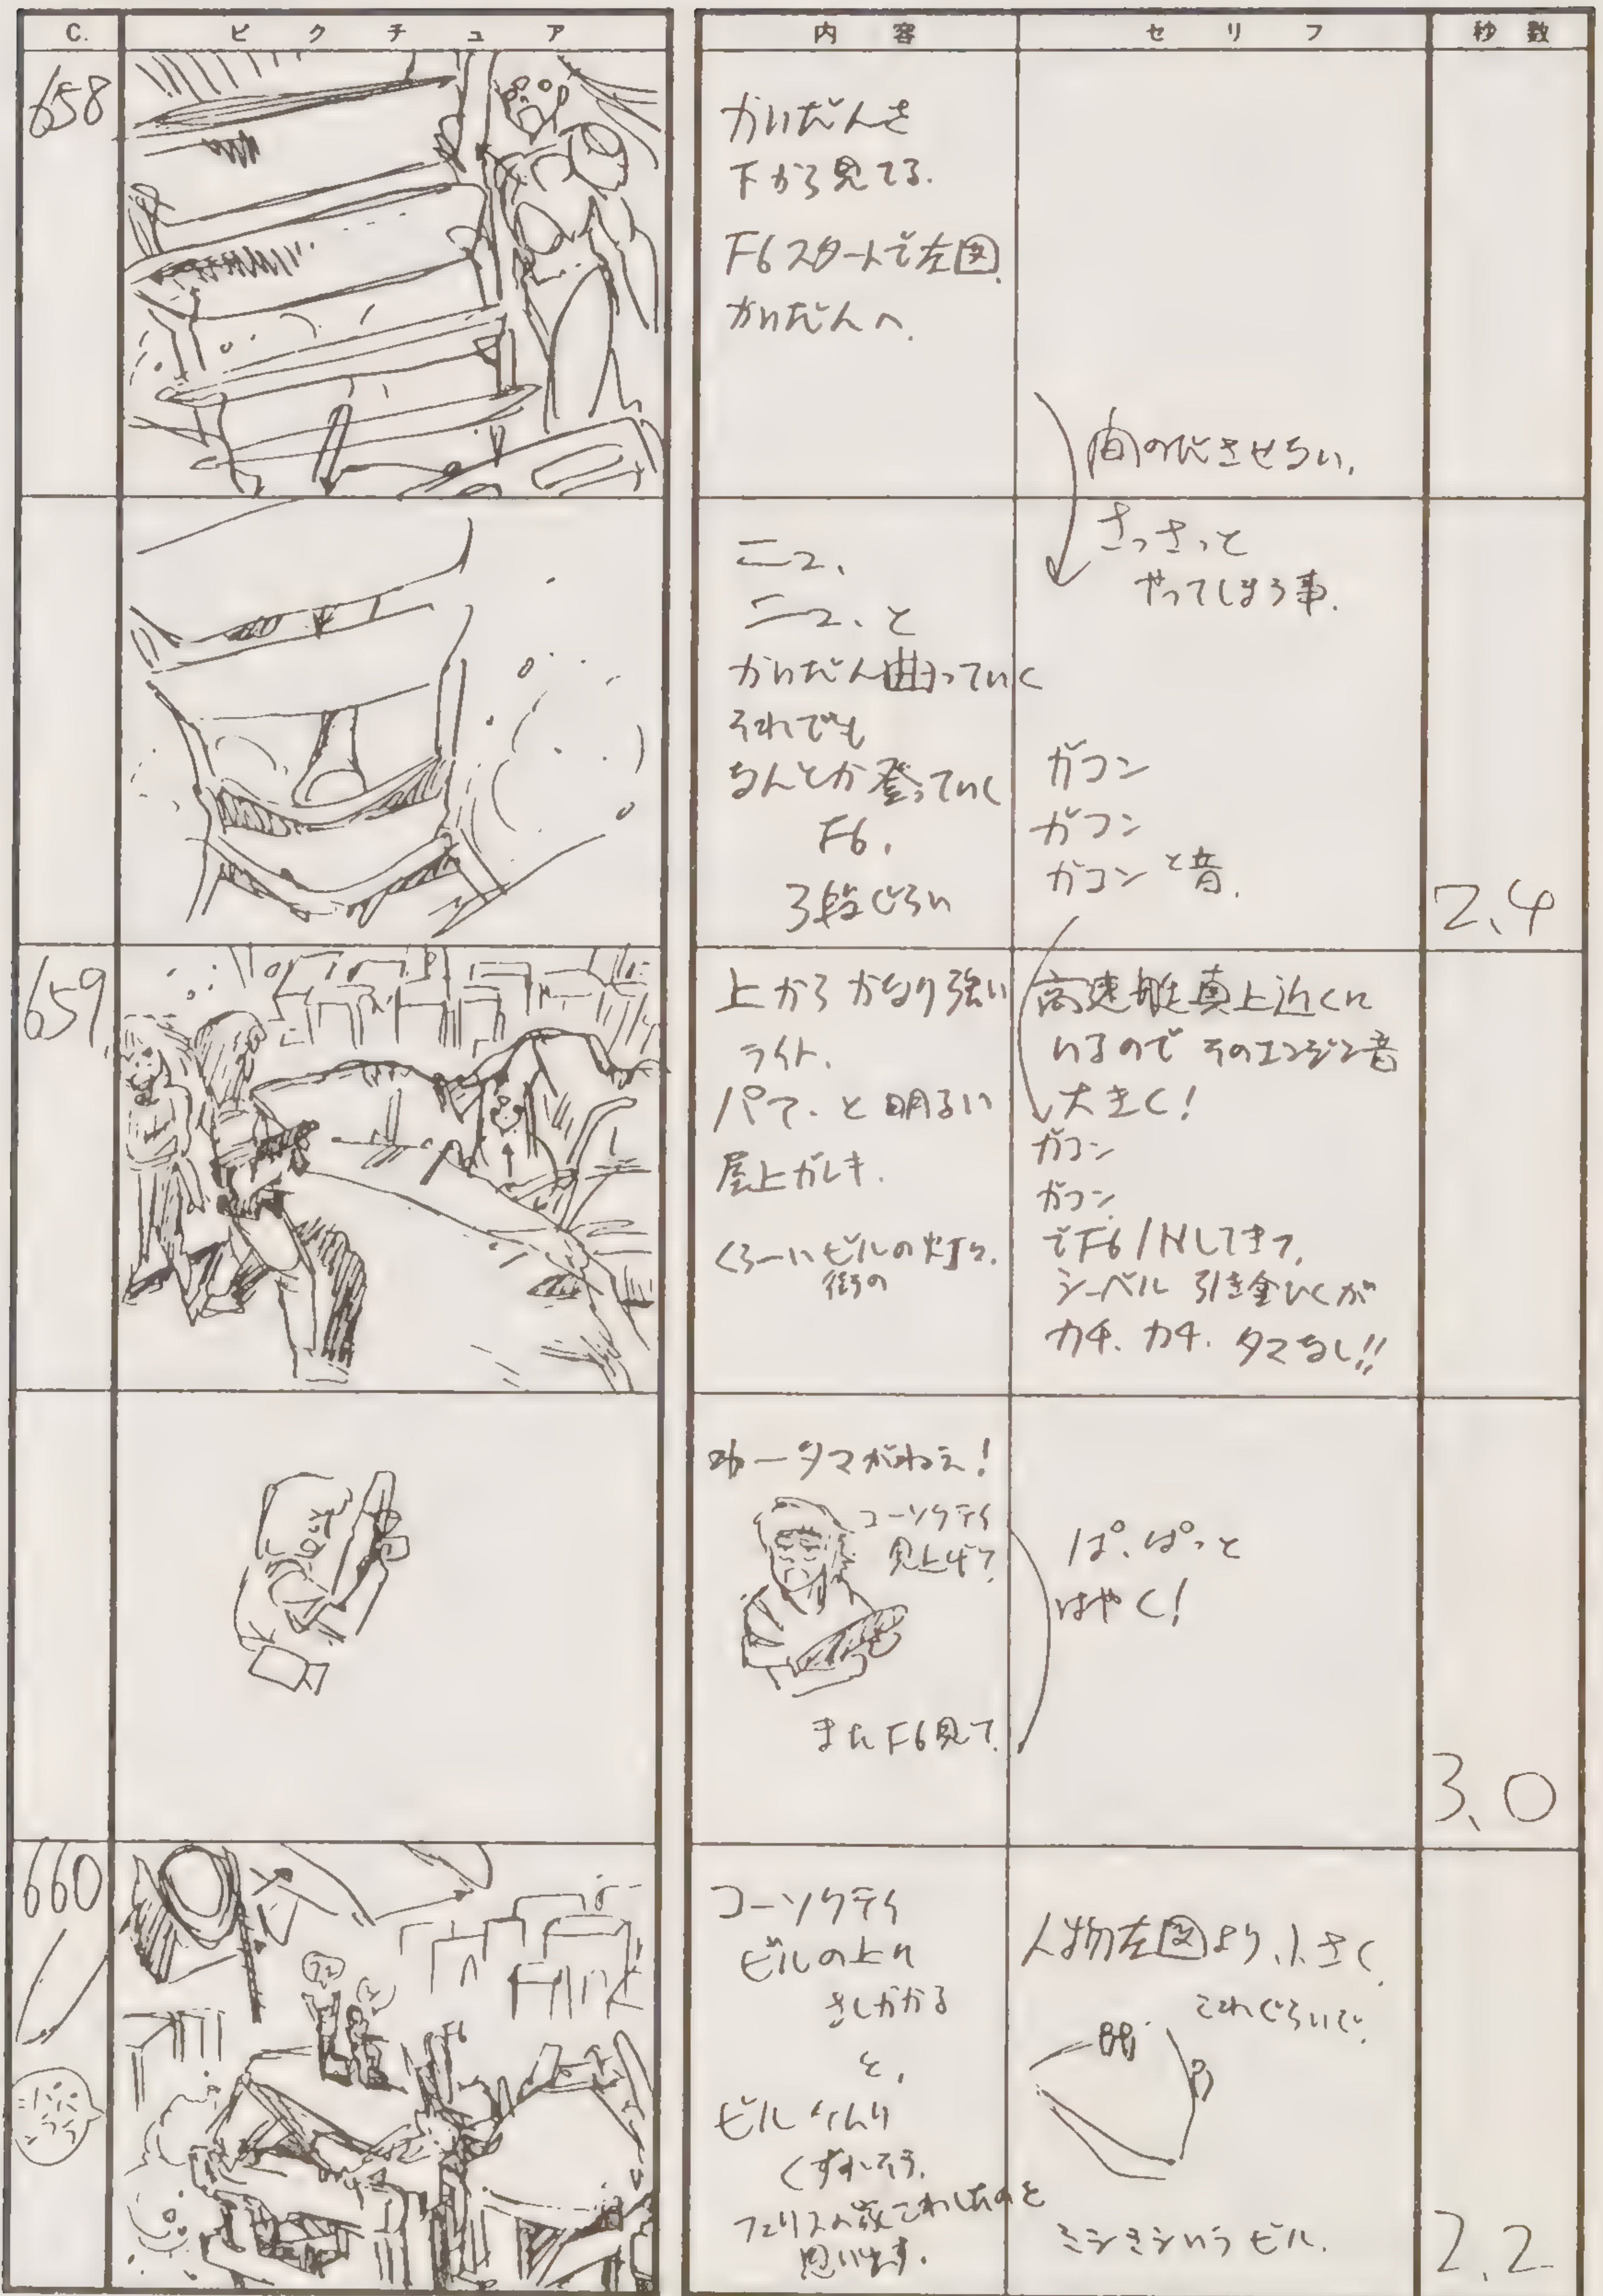 C.
ピクチュア
内容
セリフ
秒数
658
かいだんを
下から見てる.
F6スタートで左図.
かいだんへ.
間のびさせない.
さっさっと
やってしまう事.
ニュ、
ニュ、と
かいだん曲っていく
それでも
なんとか登っていく
F6.
3段ぐらい
ガコン
ガコン
ガコンと音.
2.4
659
上からかなり強い
ライト.
パァ、と明るい
屋上ガレキ.
くらーいビルの灯り.
街の
高速艇真上近くに
いるのでそのエンジン音
大きく!
ガコン
ガコン
でF6 INしてきて.
シーベル引き金ひくが
カチ.カチ.タマなし!!
タマがねえ!
コーソクテイ
見上げて
またF6見て.
ぱ、ぱっと
はやく!
3.0
660
F6
コーソクテイ
ビルの上に
さしかかる
と.
ビル
くずれそう.
思います.
人物左図より、小さく.
これぐらいで.
ミシミシいうビル.
2.2